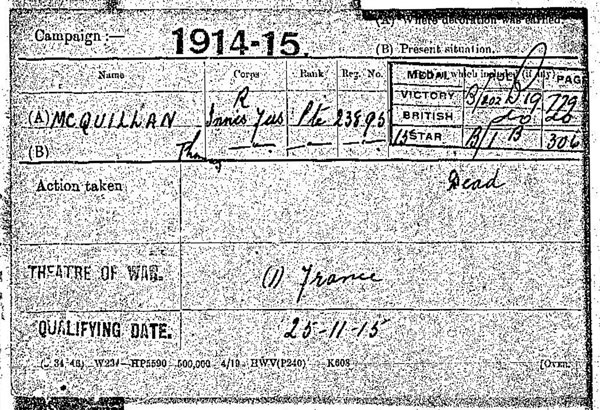 (A) Where decoration was earned.
Campaign :— 1914-15.
(B) Present situation.
Name Corps Rank Reg. No. MEDAL which included (if any) PAGE
VICTORY B/202 D19 779
(A) McQUILLAN R Innis Fus Pte 23895 BRITISH do do
15 STAR B/1 B 306
(B) Thomas — — —
Action taken Dead
THEATRE OF WAR. (1) France
QUALIFYING DATE. 25-11-15
W234—HP5590 500,000 4/19 HWV(P240) K608 [Over.